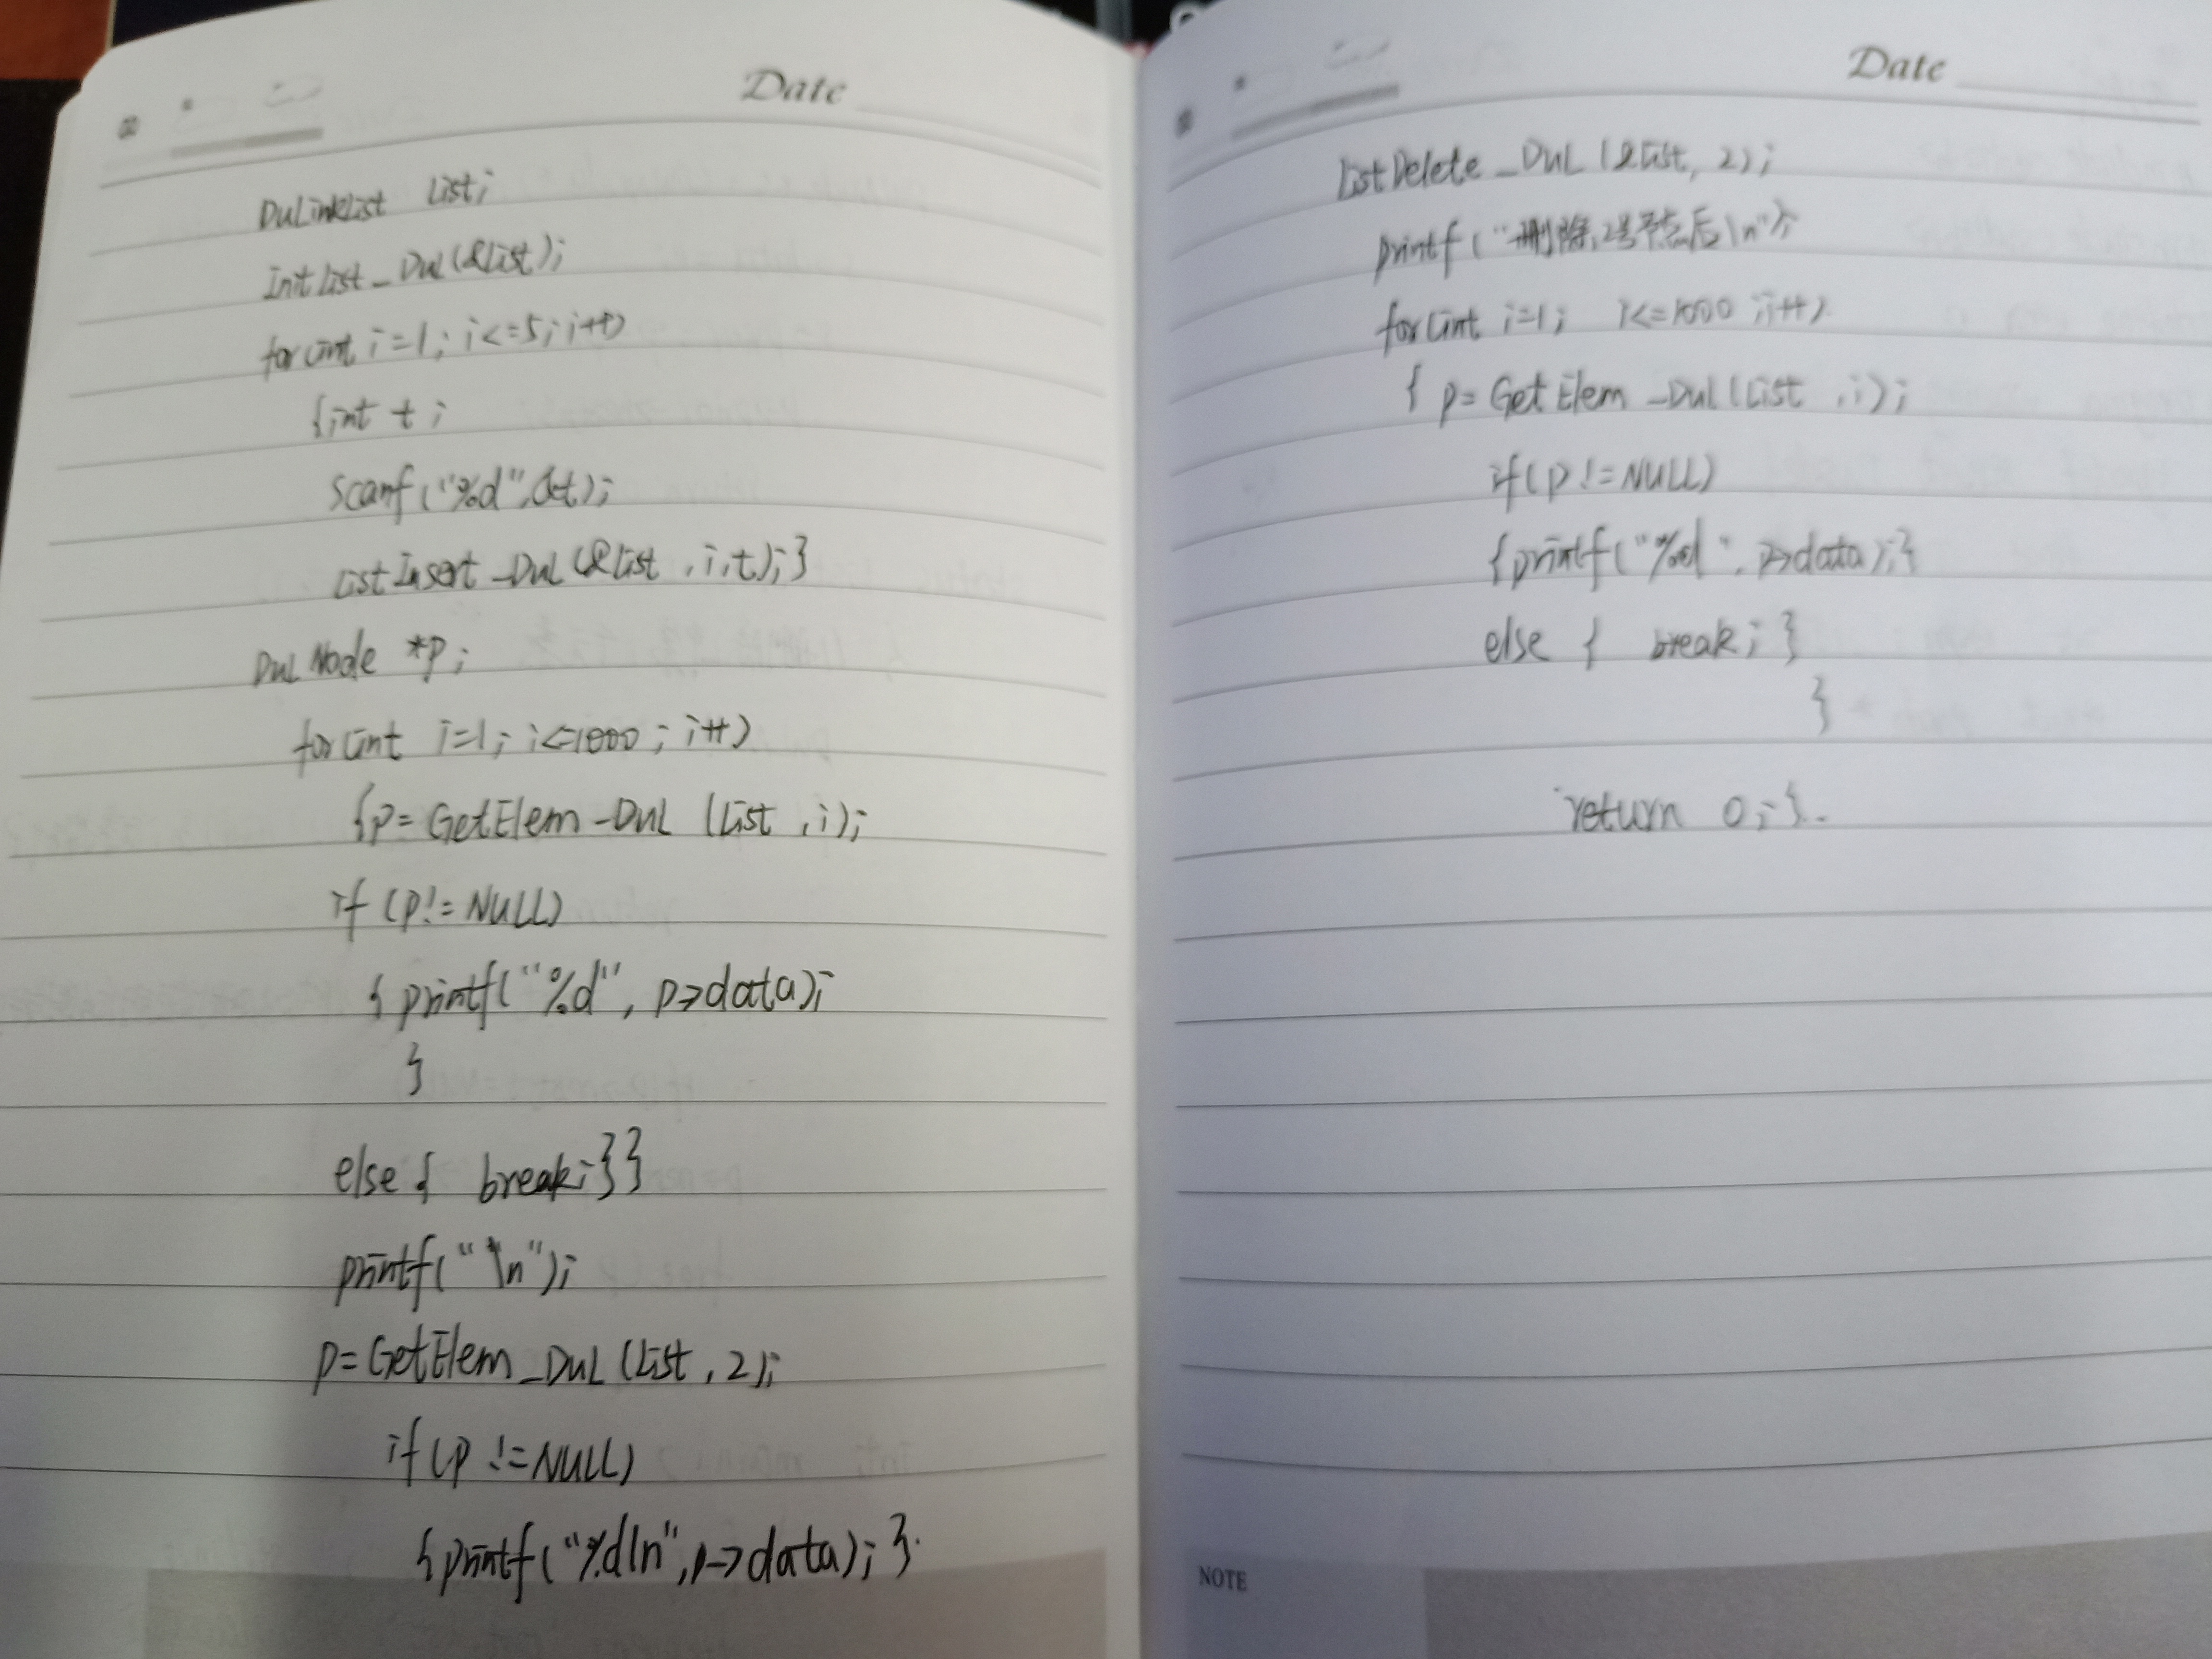 Date
DuLinkList List;
InitList_DuL(&List);
for(int i=1; i<=5; i++)
{int t;
scanf("%d",&t);
ListInsert_DuL(&List,i,t);}
DuLNode *p;
for(int i=1; i<=1000; i++)
{p=GetElem_DuL(List,i);
if(p!=NULL)
{printf("%d", p->data);
}
else{ break;}}
printf("\n");
p=GetElem_DuL(List,2);
if(p!=NULL)
{printf("%d\n",p->data);}
Date
ListDelete_DuL(&List,2);
printf("删除2号节点后\n");
for(int i=1; i<=1000;i++)
{ p=GetElem_DuL(List,i);
if(p!=NULL)
{printf("%d", p->data);}
else { break;}
}
return 0;}
NOTE